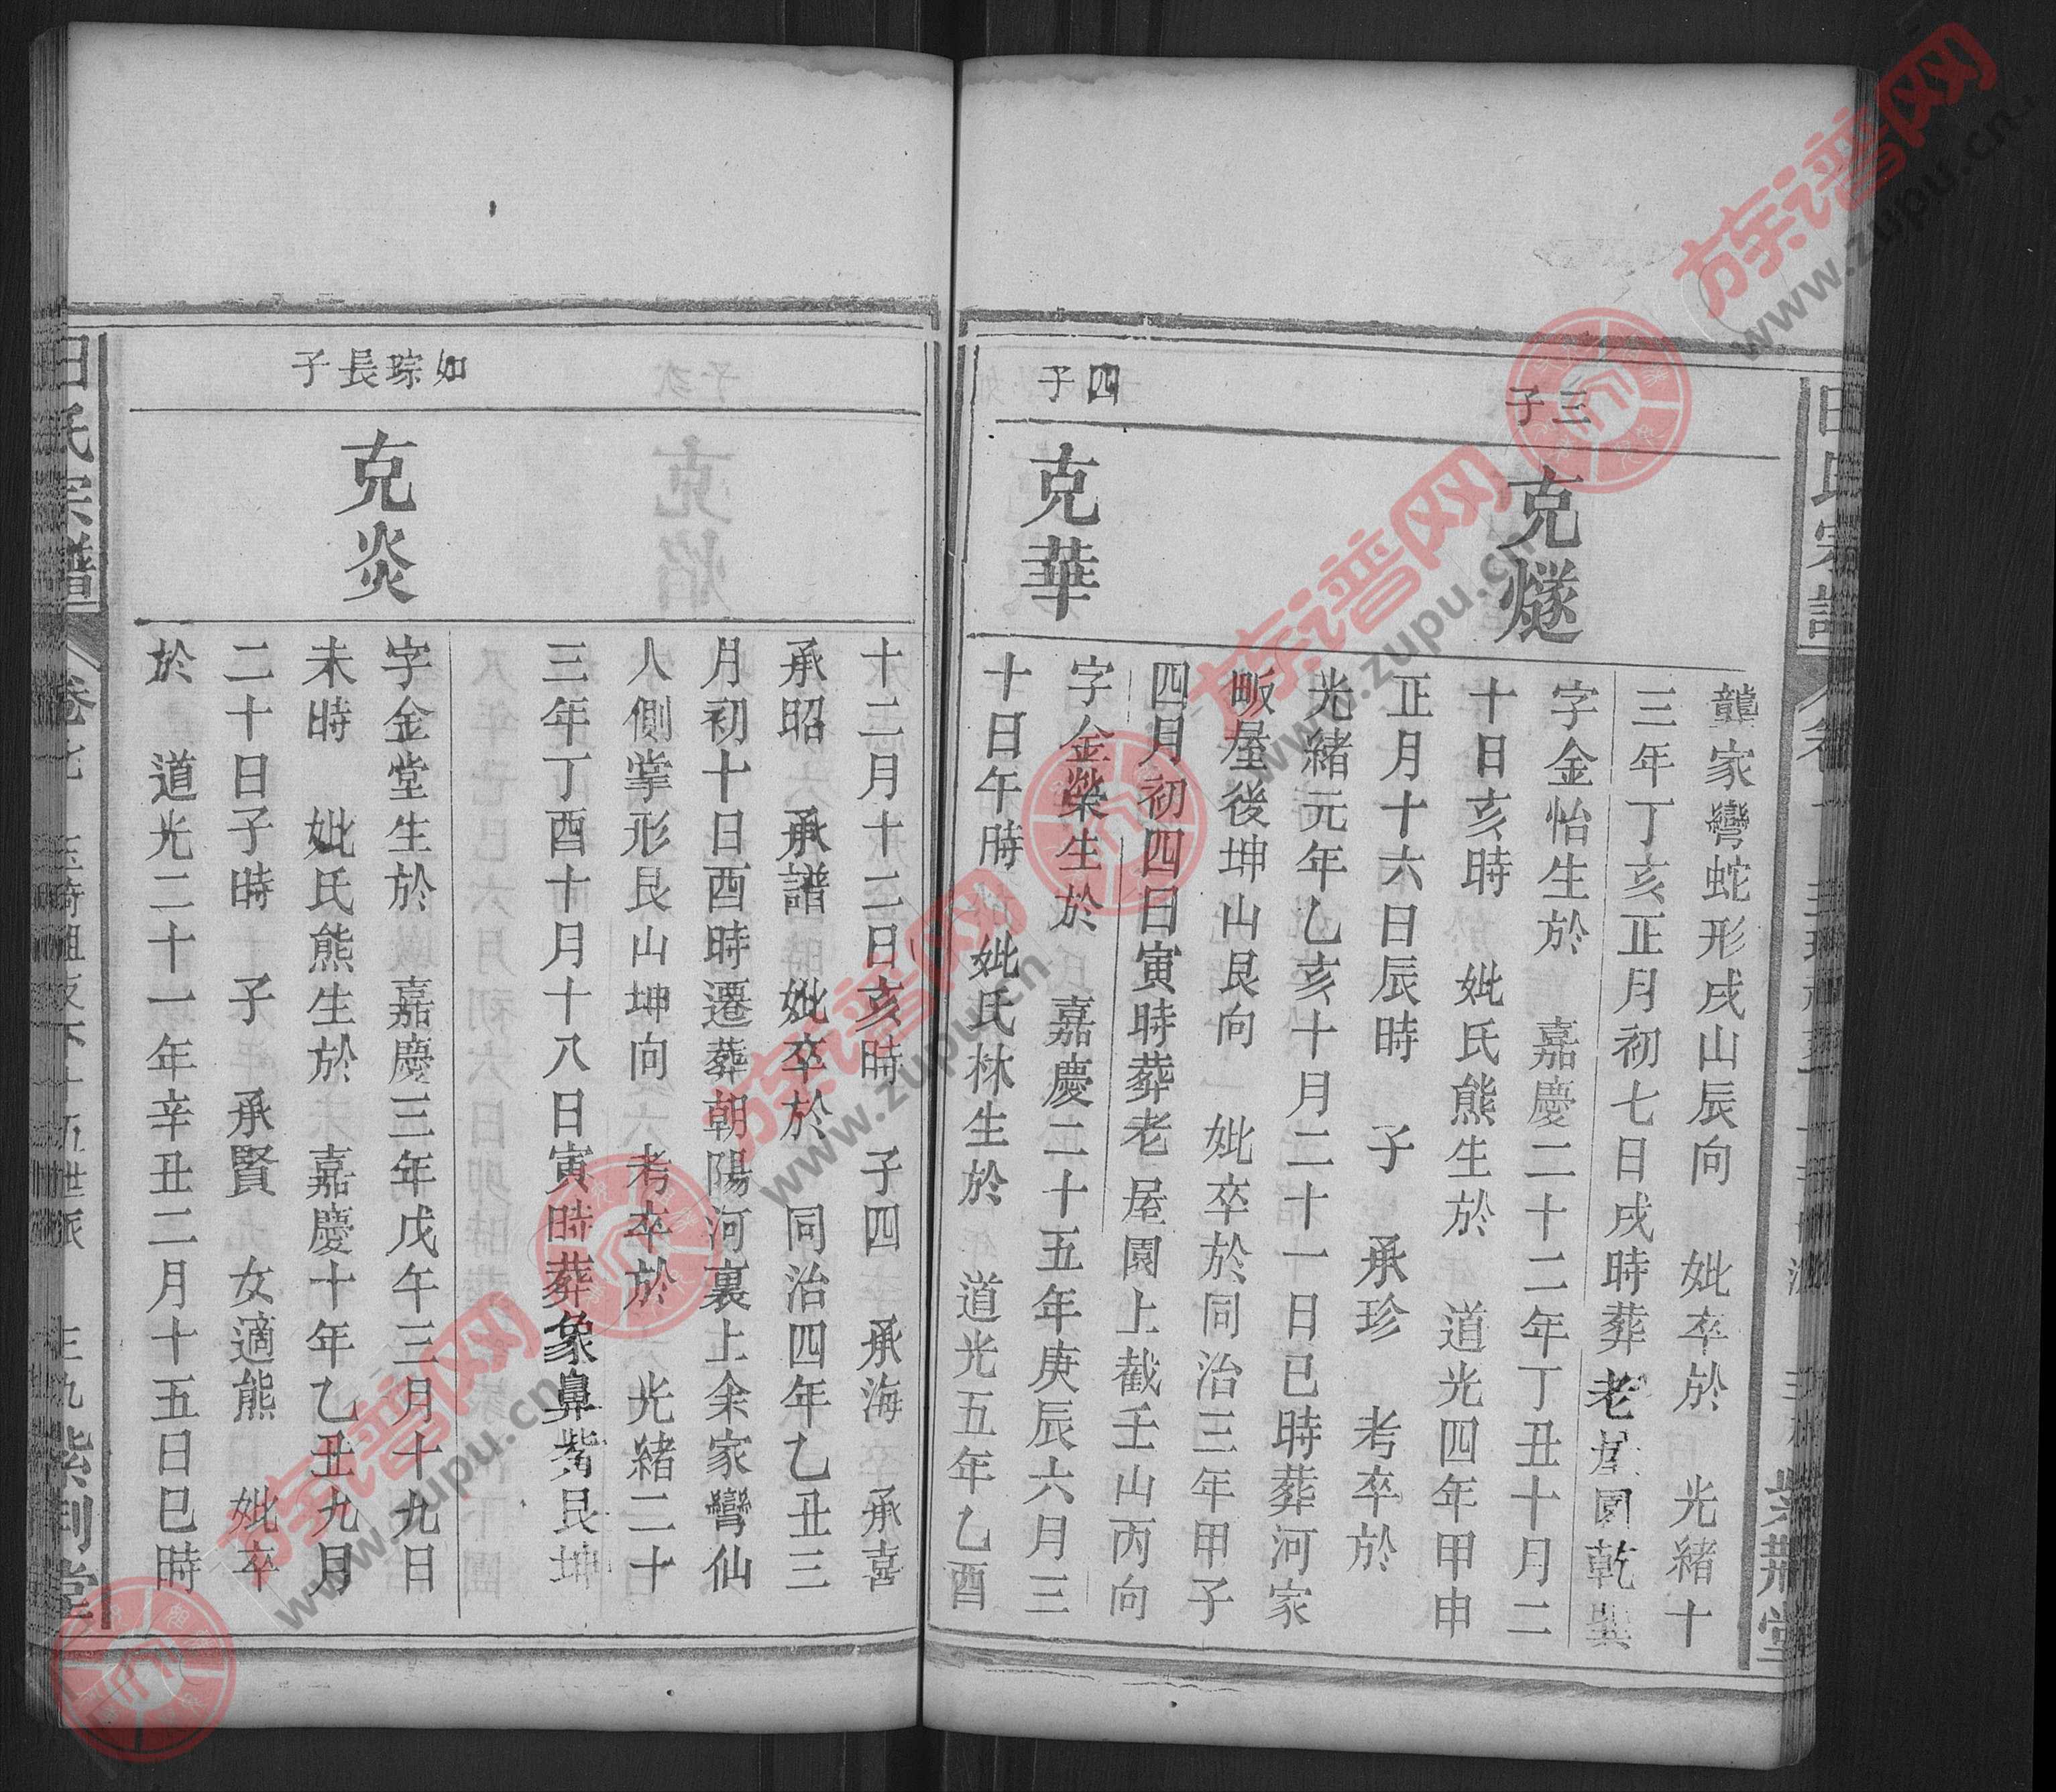 三子
克燧
龔家彎蛇形戌山辰向 妣卒於 光緒十
三年丁亥正月初七日戌時葬老屋園乾巽
字金怡生於 嘉慶二十二年丁丑十月二
十日亥時 妣氏熊生於 道光四年甲申
正月十六日辰時 子 承珍 考卒於
光緒元年乙亥十月二十一日巳時葬河家
畈屋後坤山艮向 妣卒於同治三年甲子
四月初四日寅時葬老屋園上截壬山丙向
四子
克華
字金榮生於 嘉慶二十五年庚辰六月三
十日午時 妣氏林生於 道光五年乙酉
十二月十二日亥時 子四 承海 承喜
承昭 承譜 妣卒於 同治四年乙丑三
月初十日酉時遷葬朝陽河裏上余家彎仙
人側掌形艮山坤向 考卒於 光緒二十
三年丁酉十月十八日寅時葬象鼻嘴艮坤
如琮長子
克炎
字金堂生於 嘉慶三年戊午三月十九日
未時 妣氏熊生於 嘉慶十年乙丑九月
二十日子時 子 承賢 女適熊 妣卒
於 道光二十一年辛丑二月十五日巳時
田氏宗譜 卷七 五世派 紫荆堂
田氏宗譜 紫荆堂
族谱网
www.zupu.cn
族谱网
www.zupu.cn
族谱网
www.zupu.cn
族谱网
www.zupu.cn